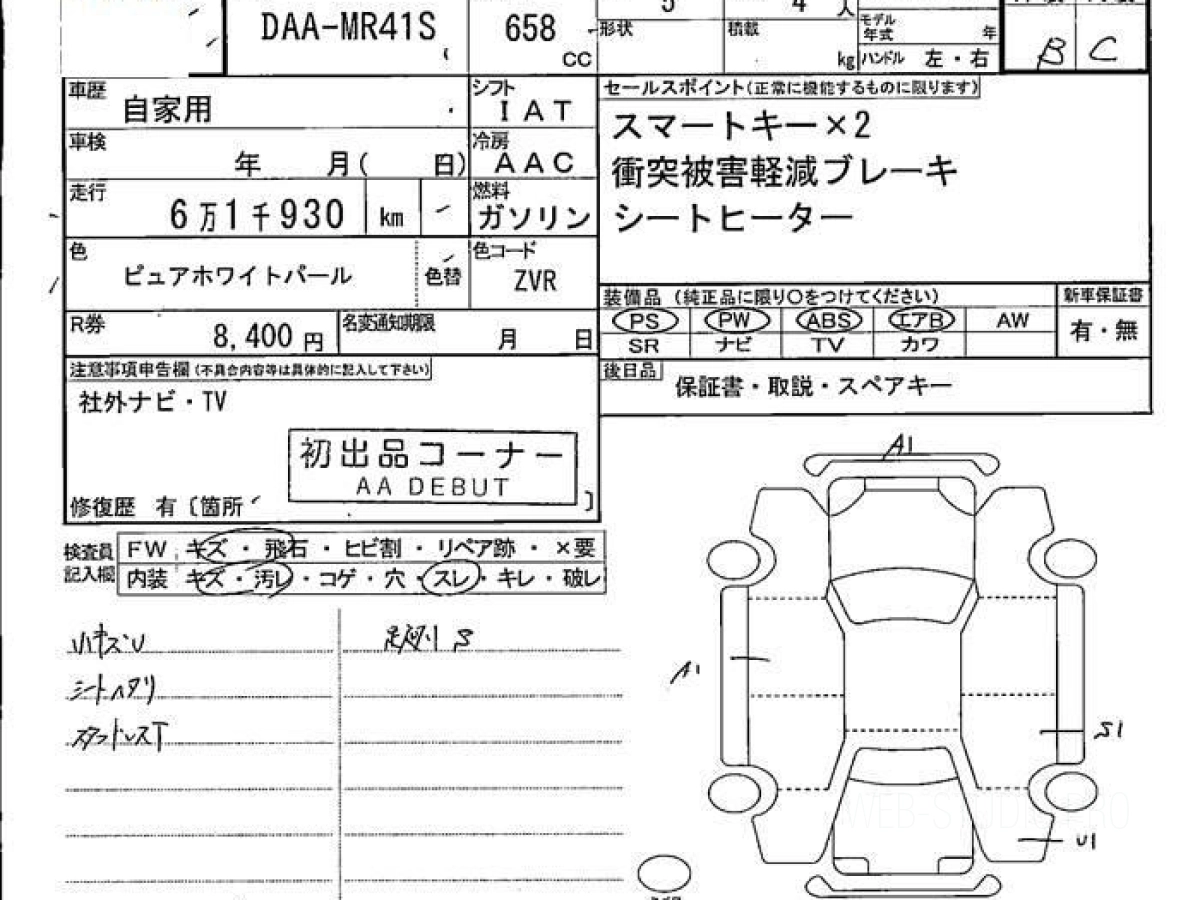 DAA-MR41S
658
CC
5
形状
4
人
積載
kg
モデル
年式
年
ハンドル 左・右
B C
車歴 自家用
シフト IAT
セールスポイント(正常に機能するものに限ります)
スマートキー×2
衝突被害軽減ブレーキ
シートヒーター
車検 年 月( 日)
冷房 AAC
走行 6万1千930 km
燃料 ガソリン
色 ピュアホワイトパール
色替
色コード ZVR
装備品 (純正品に限り○をつけてください)
新車保証書
PS PW ABS エアB AW
SR ナビ TV カワ
有・無
R券 8,400 円
名変通知期限 月 日
後日品 保証書・取説・スペアキー
注意事項申告欄(不具合内容等は具体的に記入して下さい)
社外ナビ・TV
初出品コーナー
AA DEBUT
修復歴 有〔箇所 〕
検査員
記入欄
FW キズ・飛石・ヒビ割・リペア跡・×要
内装 キズ・汚レ・コゲ・穴・スレ・キレ・破レ
小キズU
シートヘタリ
スタッドレスT
S
A1
A1
S1
U1